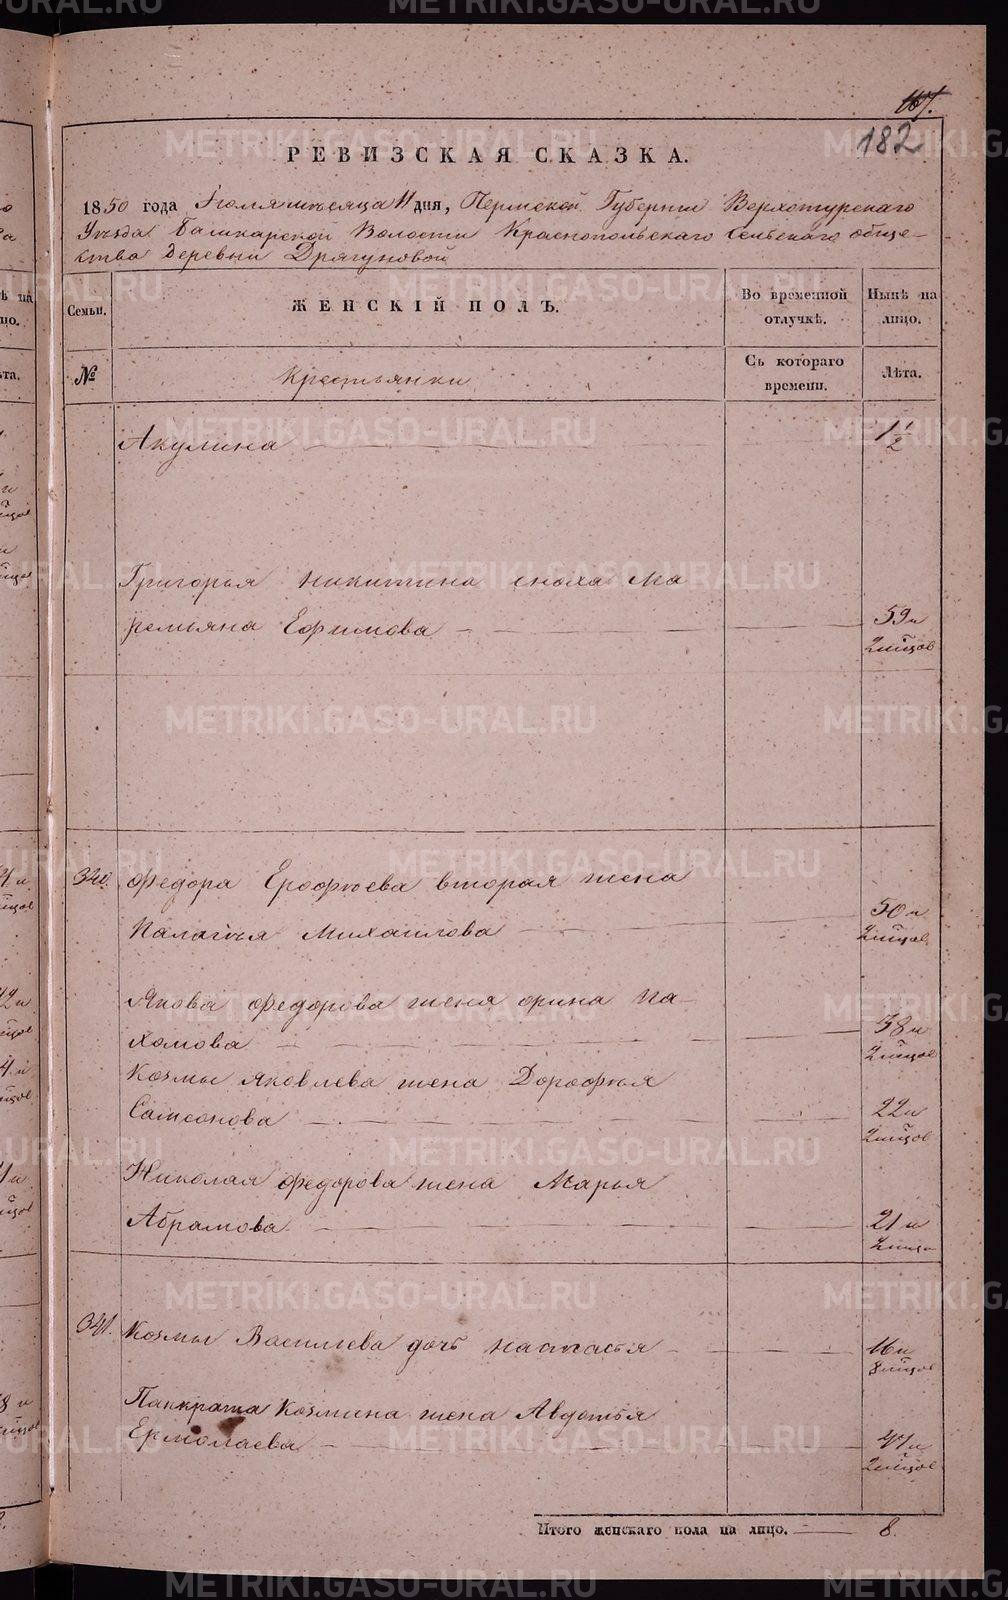 167.
182
РЕВИЗСКАЯ СКАЗКА.
1850 года Июля месяца 11 дня, Пермской Губернии Верхотурскаго
Уѣзда Башкарской Волости Краснопольскаго Сельскаго обще-
ства деревни Дрягуновой
Семьи.
ЖЕНСКІЙ ПОЛЪ.
Во временной отлучкѣ.
Нынѣ на лицо.
№
Крестьянки
Съ котораго времени.
Лѣта.
Акулина 1 1/2
Григорья Никитина сноха Ма
ремьяна Ефимова 59 и
2 м҃цов
340. Федора Ерофѣева вторая жена
Палагѣя Михаилова 50 и
2 м҃цов
Якова Федорова жена Орина Па-
хомова 38 и
2 м҃цов
Козмы Яковлева жена Дорофѣя
Самсонова 22 и
2 м҃цов
Николая Федорова жена Марья
Абрамова 21 и
2 м҃ц
341. Козмы Васильева дочь Настасья 16 и
8 м҃цов
Панкрата Козмина жена Авдотья
Ермолаева 47 и
2 м҃цов
Итого женскаго пола на лицо. 8.
METRIKI.GASO-URAL.RU